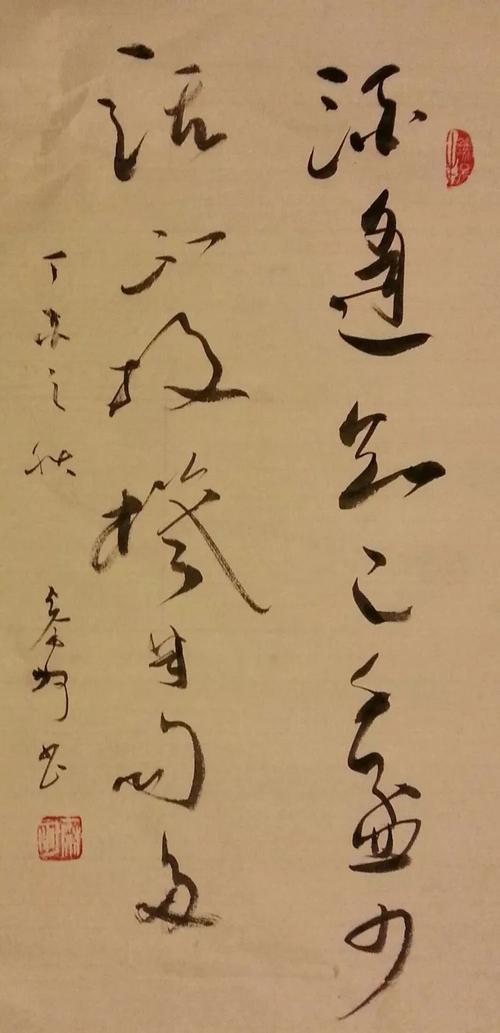 酒逢知己千盃少
話不投機半句多
丁亥之秋
書